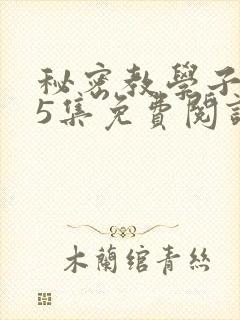 秘密教學子
5集免費閱讀
木蘭綰青絲